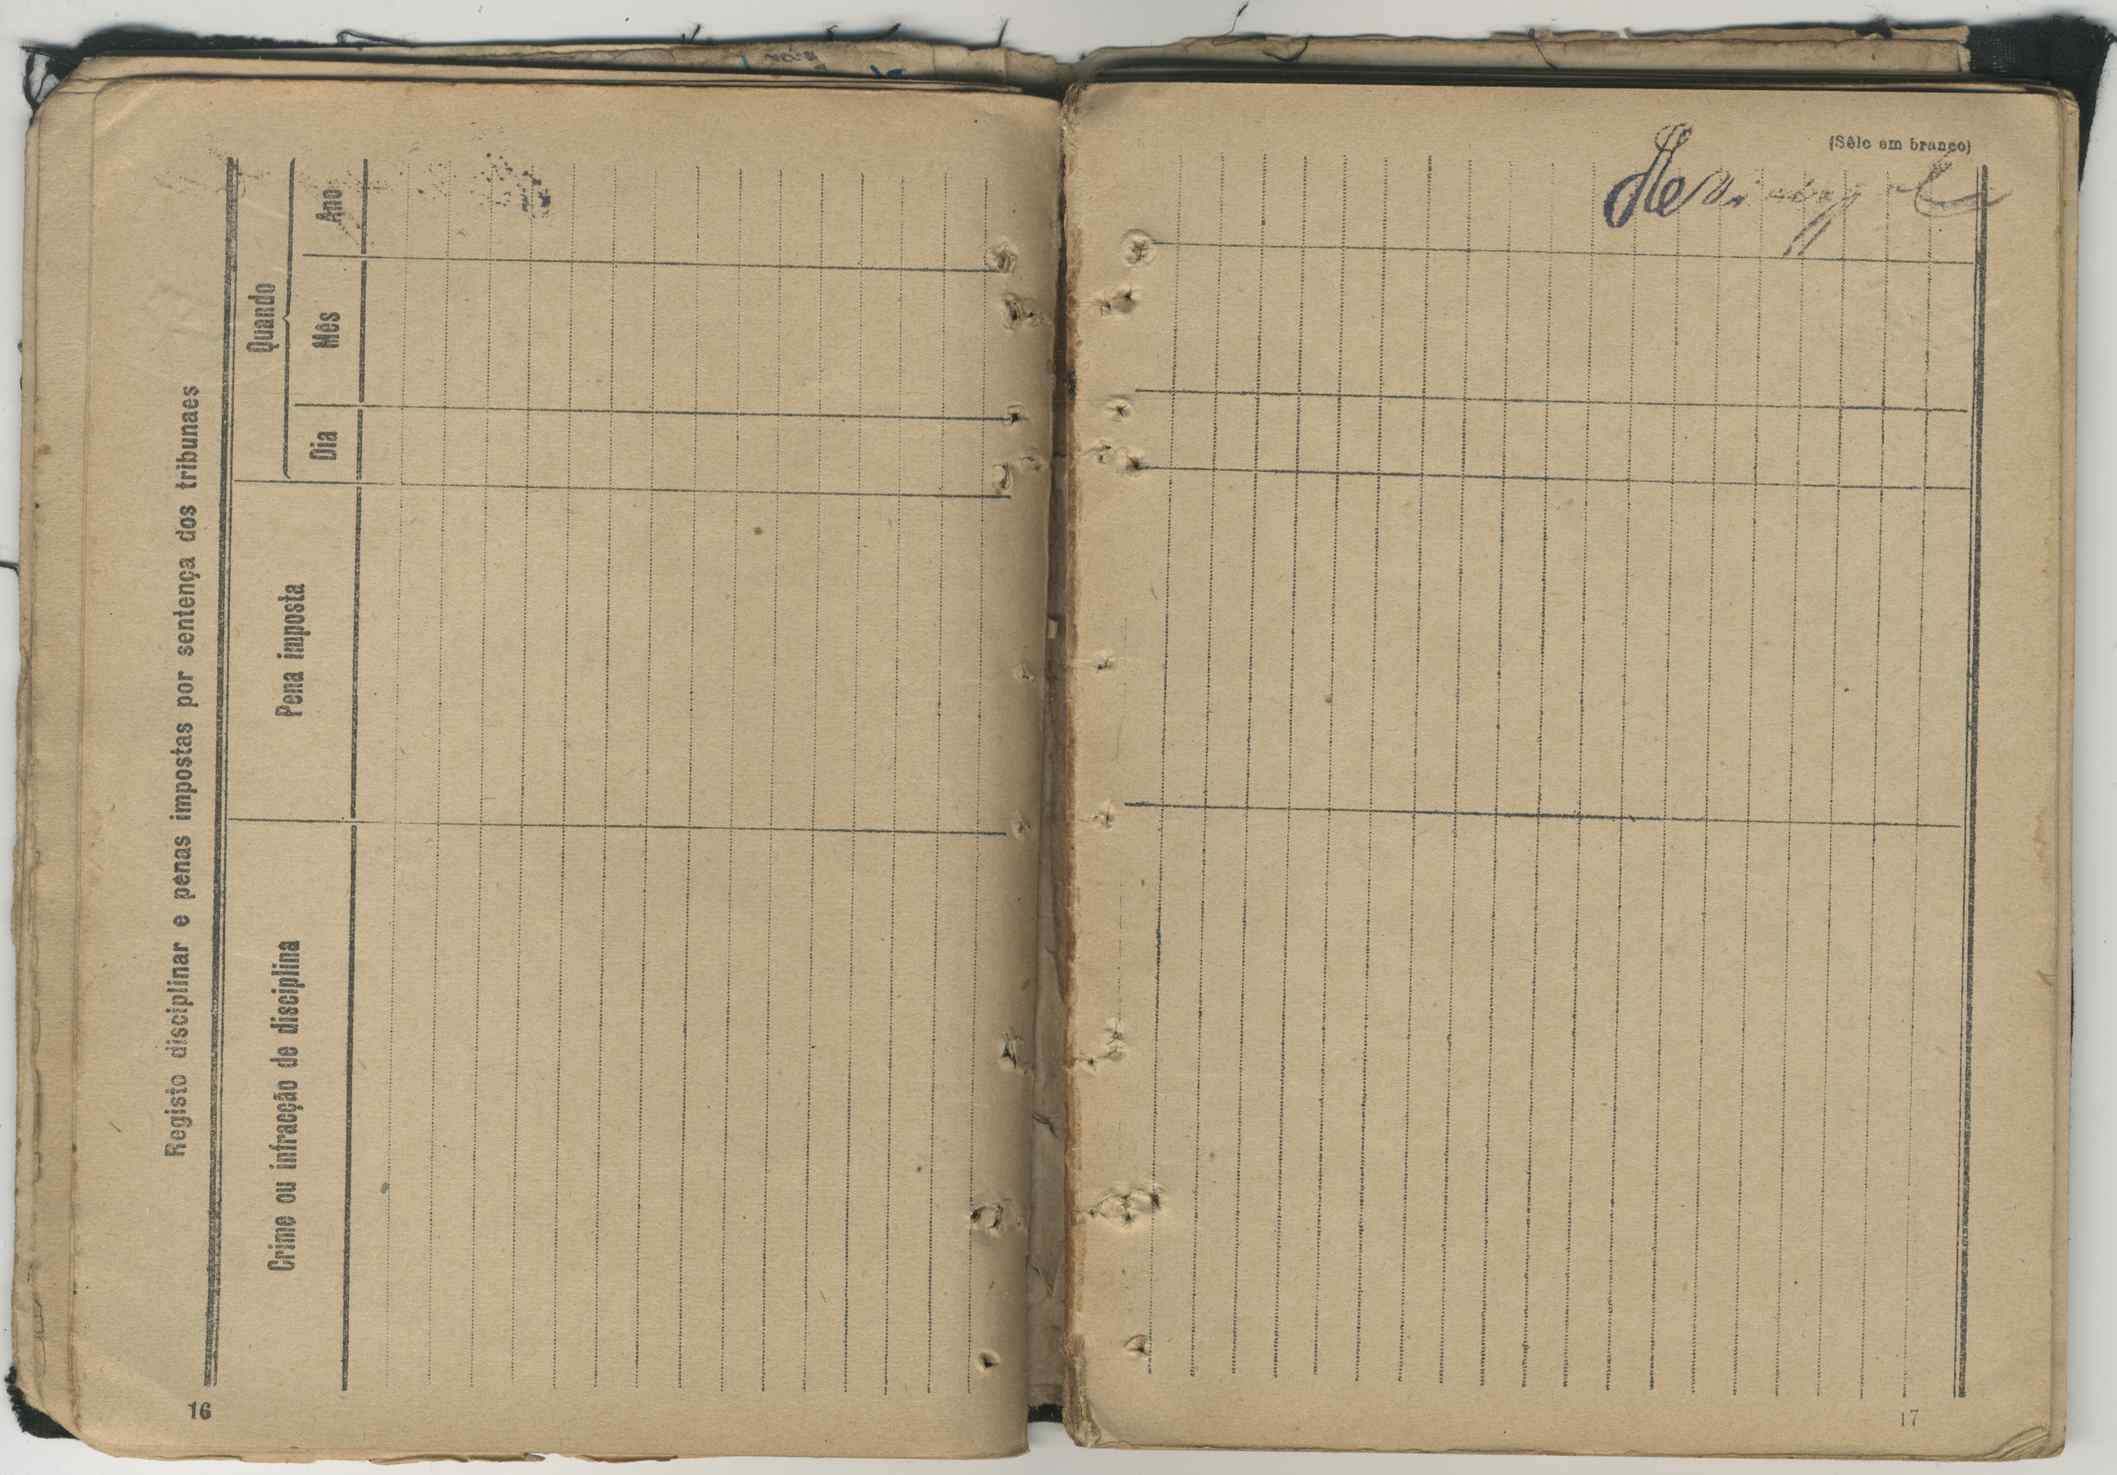 Registo disciplinar e penas impostas por sentença dos tribunaes
Crime ou infracção de disciplina
Pena imposta
Quando
Dia
Mês
Ano
16
(Sêlo em branco)
17